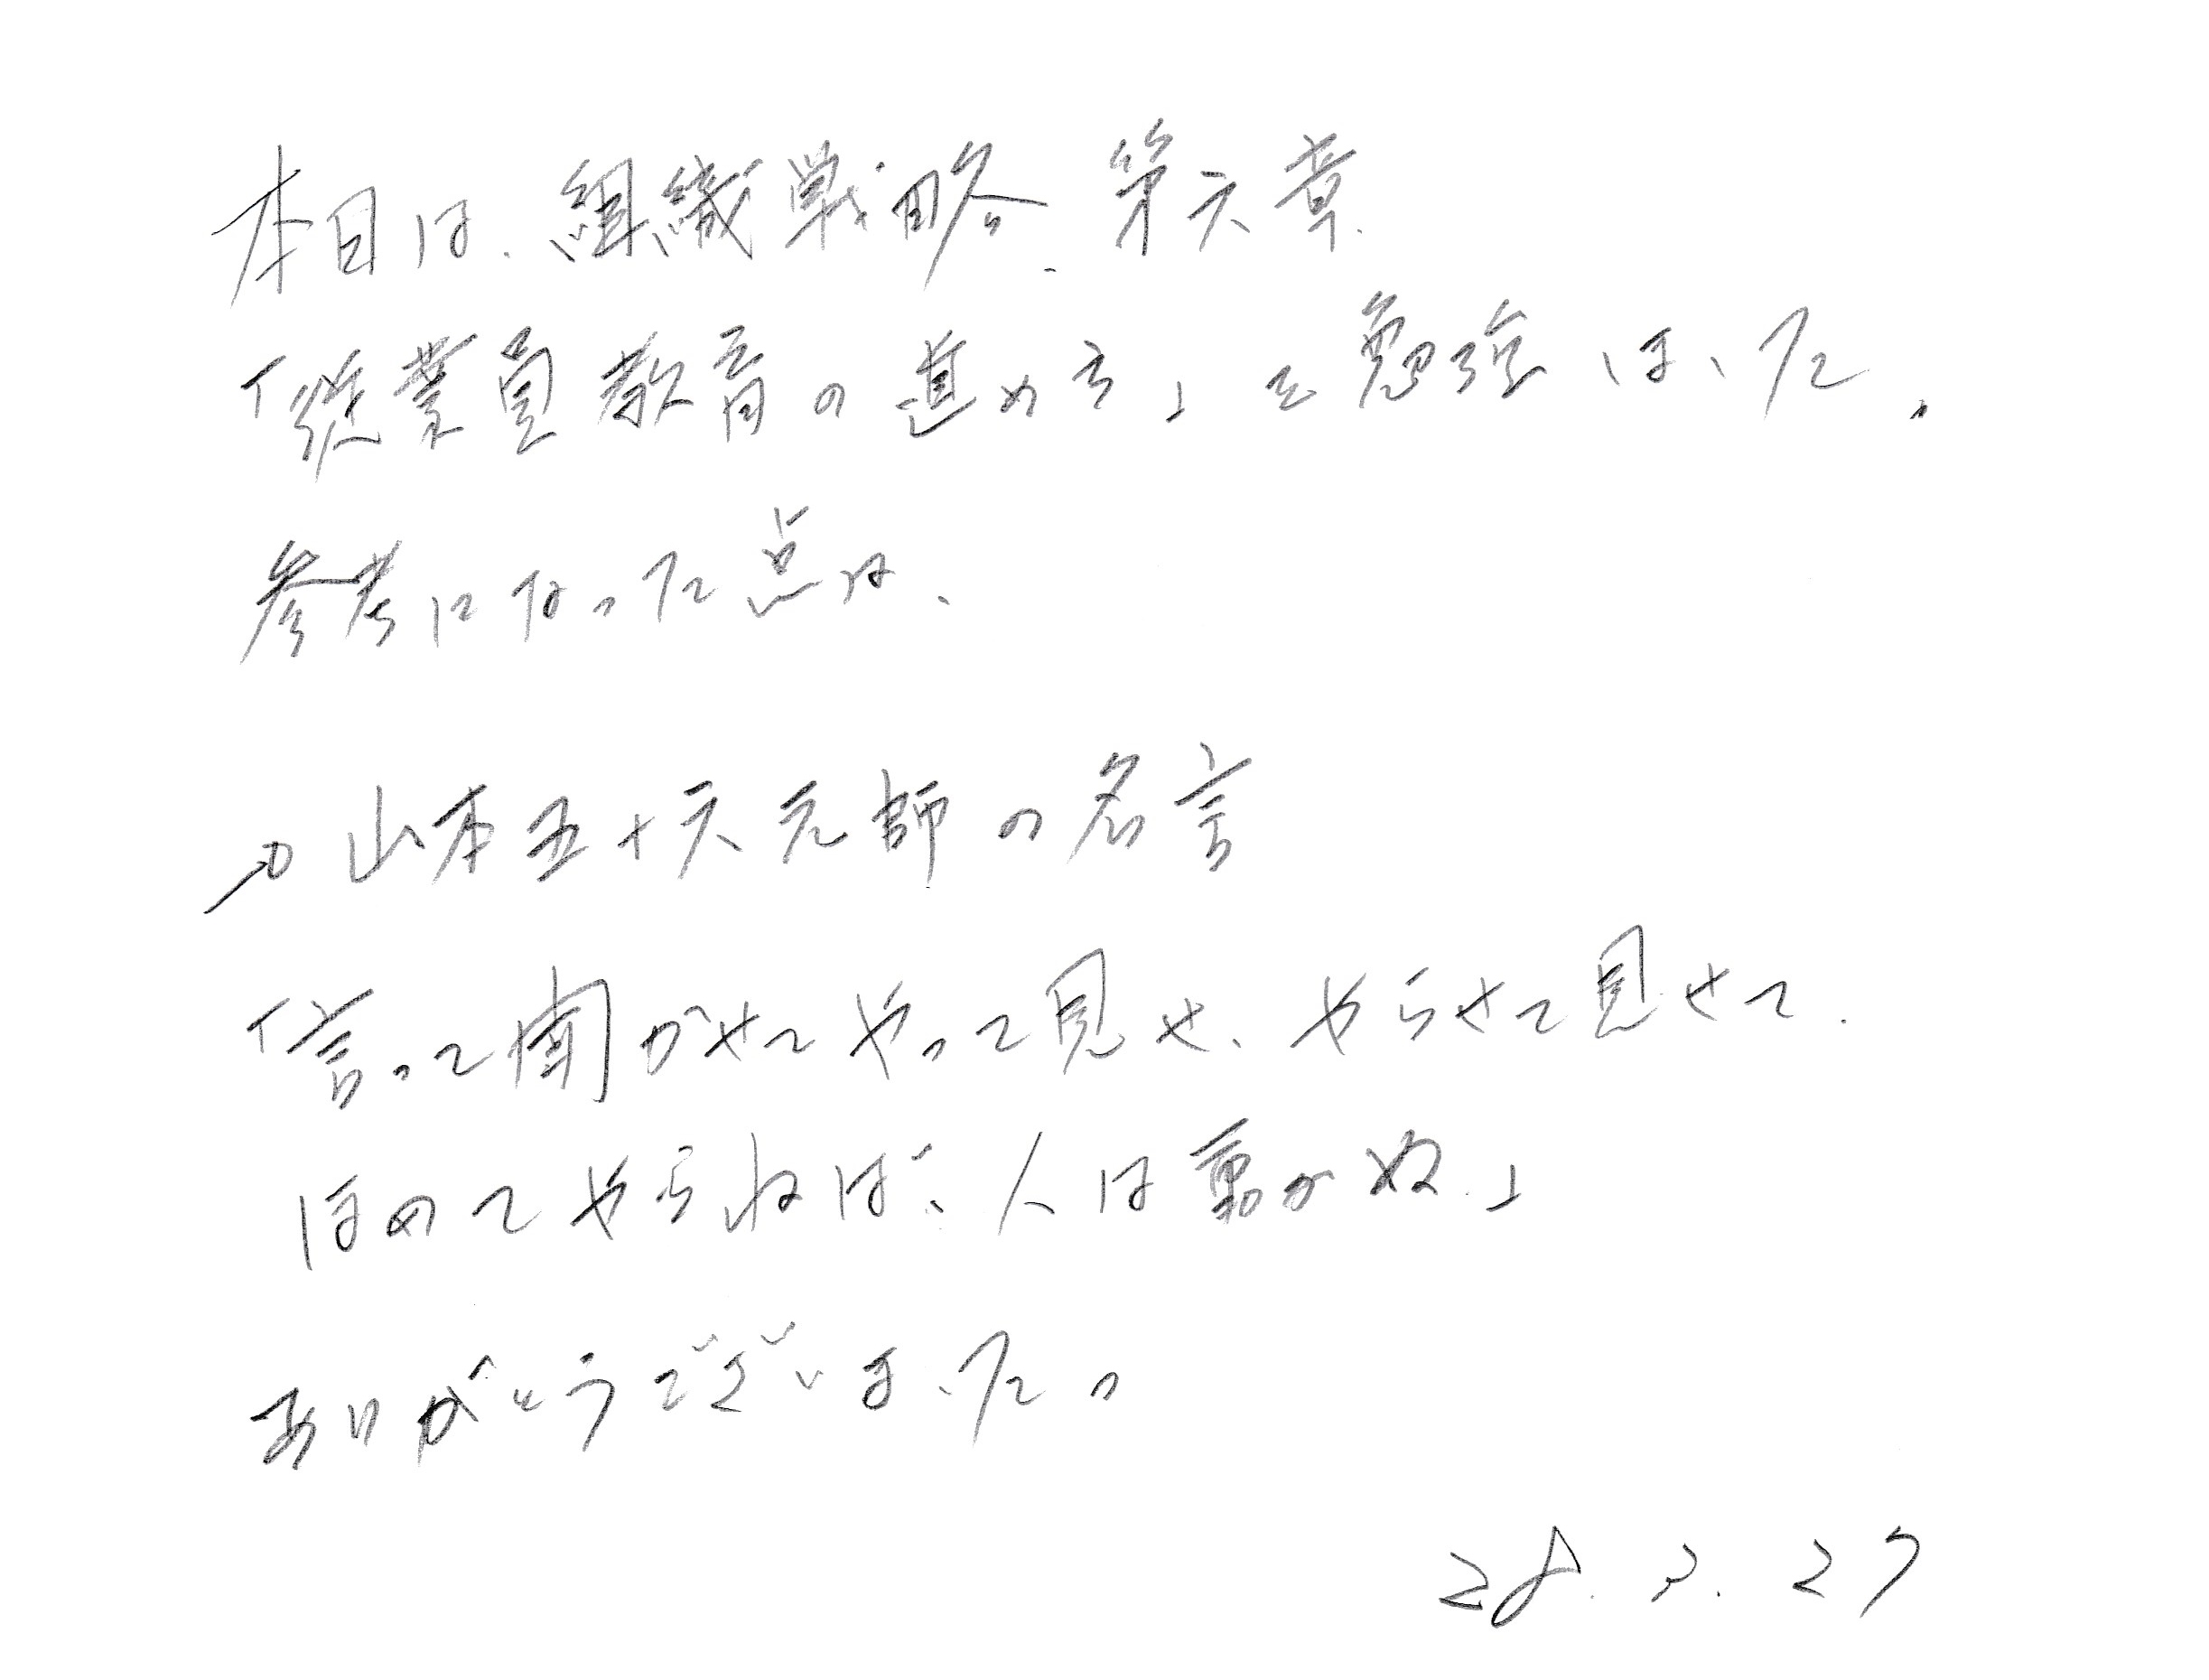 本日は、組織戦略、第六章、
「従業員教育の進め方」を勉強しました。
参考になった点は、
山本五十六元師の名言
「言って聞かせてやって見せ、やらせて見せて、
ほめてやらねば、人は動かぬ。」
ありがとうございました。
28. 2. 27